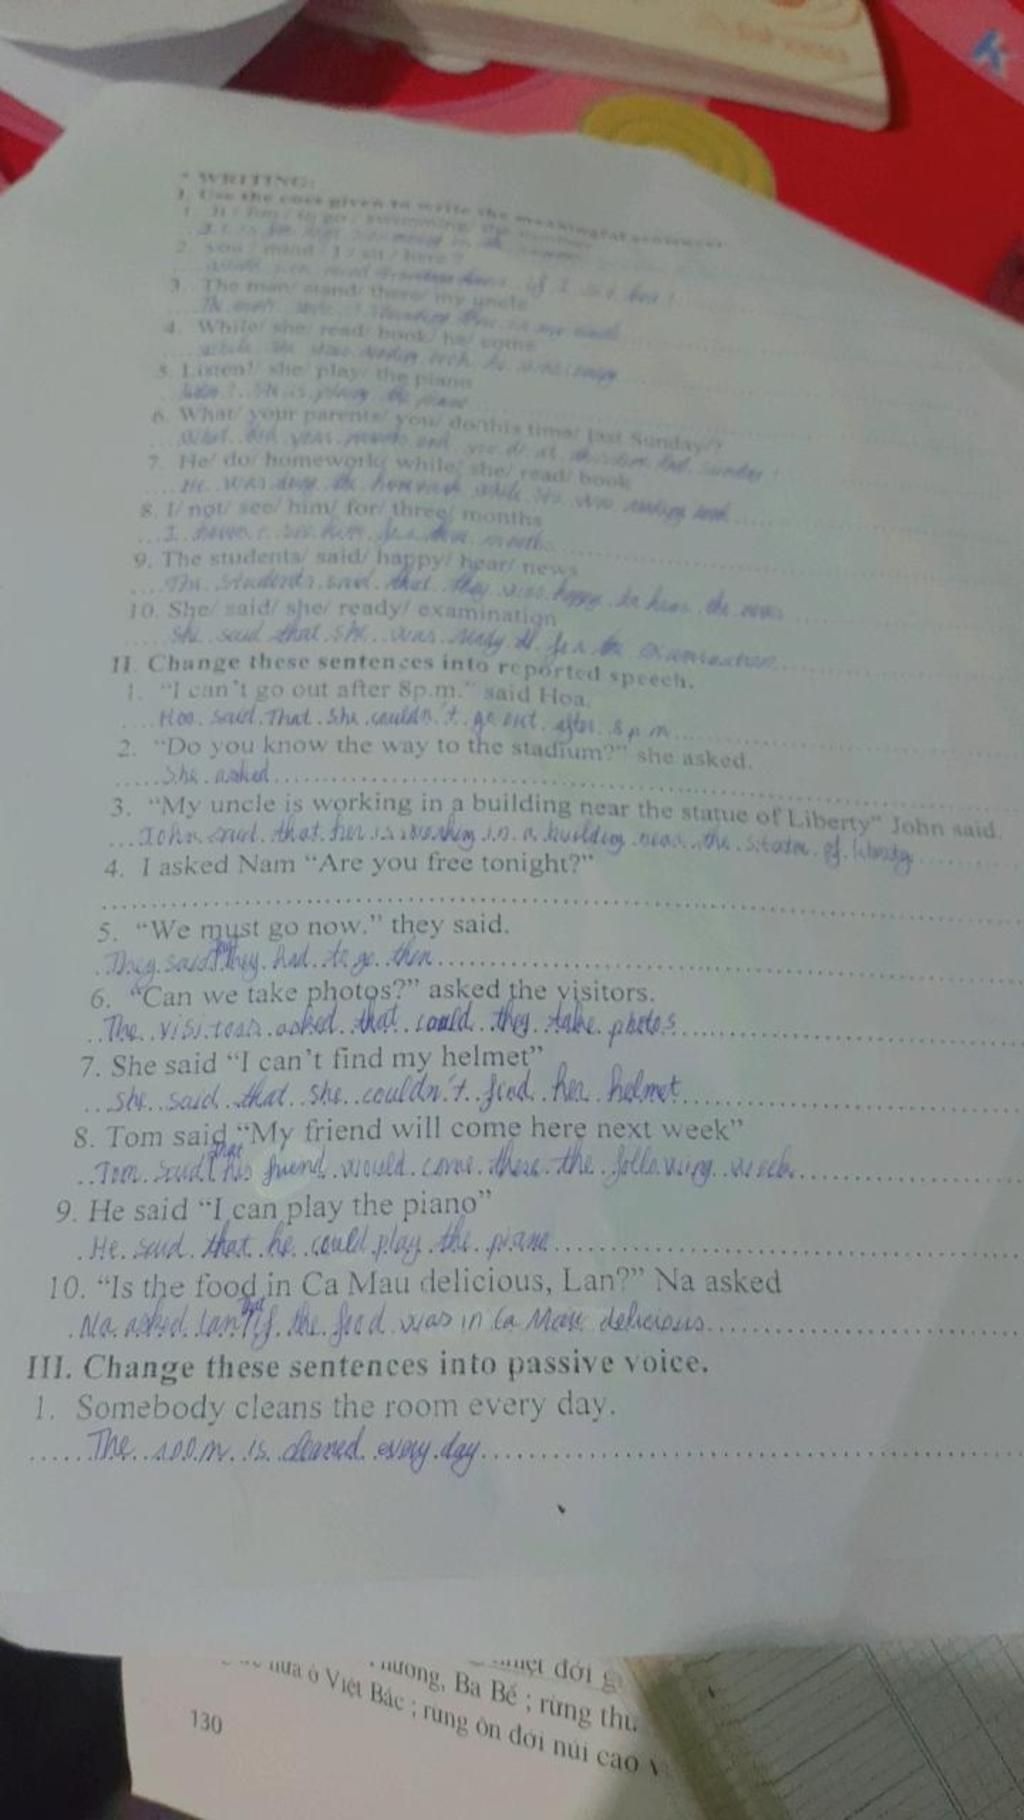 * WRITING:
I. Use the cues given to write the meaningful sentences
1. It / fun / to go / swimming / the
2. you / mind / I / sit / here ?
if I sit here ?
3. The man/ stand/ there/ my uncle
The man
4. While/ she/ read/ book/ he/ come
while she was reading book he was coming
5. Listen!/ she/ play/ the piano
listen ! She is playing the piano
6. What/ your parents/ you/ do/this time/ last Sunday/?
What did your parents and you do at this time last Sunday ?
7. He/ do/ homework/ while/ she/ read/ book
He was doing the homework while she was reading book
8. I/ not/ see/ him/ for/ three/ months
I haven't see him for three months
9. The students/ said/ happy/ hear/ news
The students said that they was happy to hear the news
10. She/ said/ she/ ready/ examination
She said that she was ready for the examination
II. Change these sentences into reported speech.
1. "I can't go out after 8p.m." said Hoa.
Hoa said That she couldn't go out after 8 p.m
2. "Do you know the way to the stadium?" she asked.
She asked
3. "My uncle is working in a building near the statue of Liberty" John said.
John said that her is working in a building near the statue of liberty
4. I asked Nam "Are you free tonight?"
5. "We must go now." they said.
They said they had to go then
6. "Can we take photos?" asked the visitors.
The visitors asked that could they take photos
7. She said "I can't find my helmet"
She said that she couldn't find her helmet
8. Tom said "My friend will come here next week"
Tom said that his friend would come there the following week
9. He said "I can play the piano"
He said that he could play the piano
10. "Is the food in Ca Mau delicious, Lan?" Na asked
Na asked Lan that if the food was in Ca Mau delicious
III. Change these sentences into passive voice.
1. Somebody cleans the room every day.
The room is cleaned every day
đới
Ba Bể ; rừng thư
ở Việt Bắc ; rừng ôn đới núi cao
130